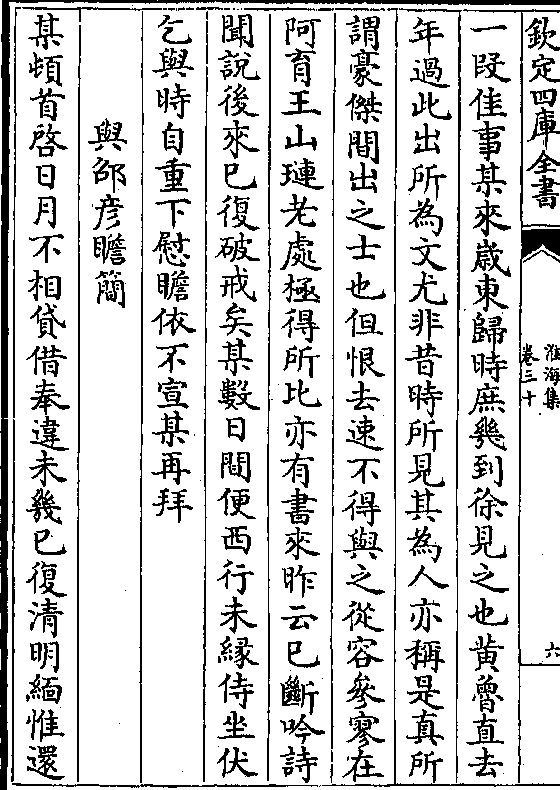 欽定四庫全書
淮海集
卷三十
六
一段佳事某來歲東歸時庶幾到徐見之也黃魯直去
年過此出所為文尤非昔時所見其為人亦稱是真所
謂豪傑間出之士也但恨去速不得與之從容參寥在
阿育王山璉老處極得所比亦有書來昨云已斷吟詩
聞說後來已復破戒矣某數日間便西行未緣侍坐伏
乞與時自重下慰瞻依不宣某再拜
與邵彥瞻簡
某頓首啓日月不相貸借奉違未幾已復清明緬惟還